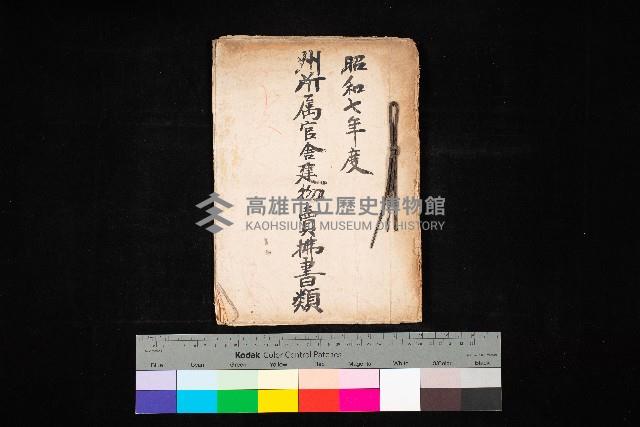 昭和七年度
州所属官舎建物賣拂書類
高雄市立歷史博物館
KAOHSIUNG MUSEUM OF HISTORY
Kodak Color Control Patches
Blue Cyan Green Yellow Red Magenta White 3/Color Black